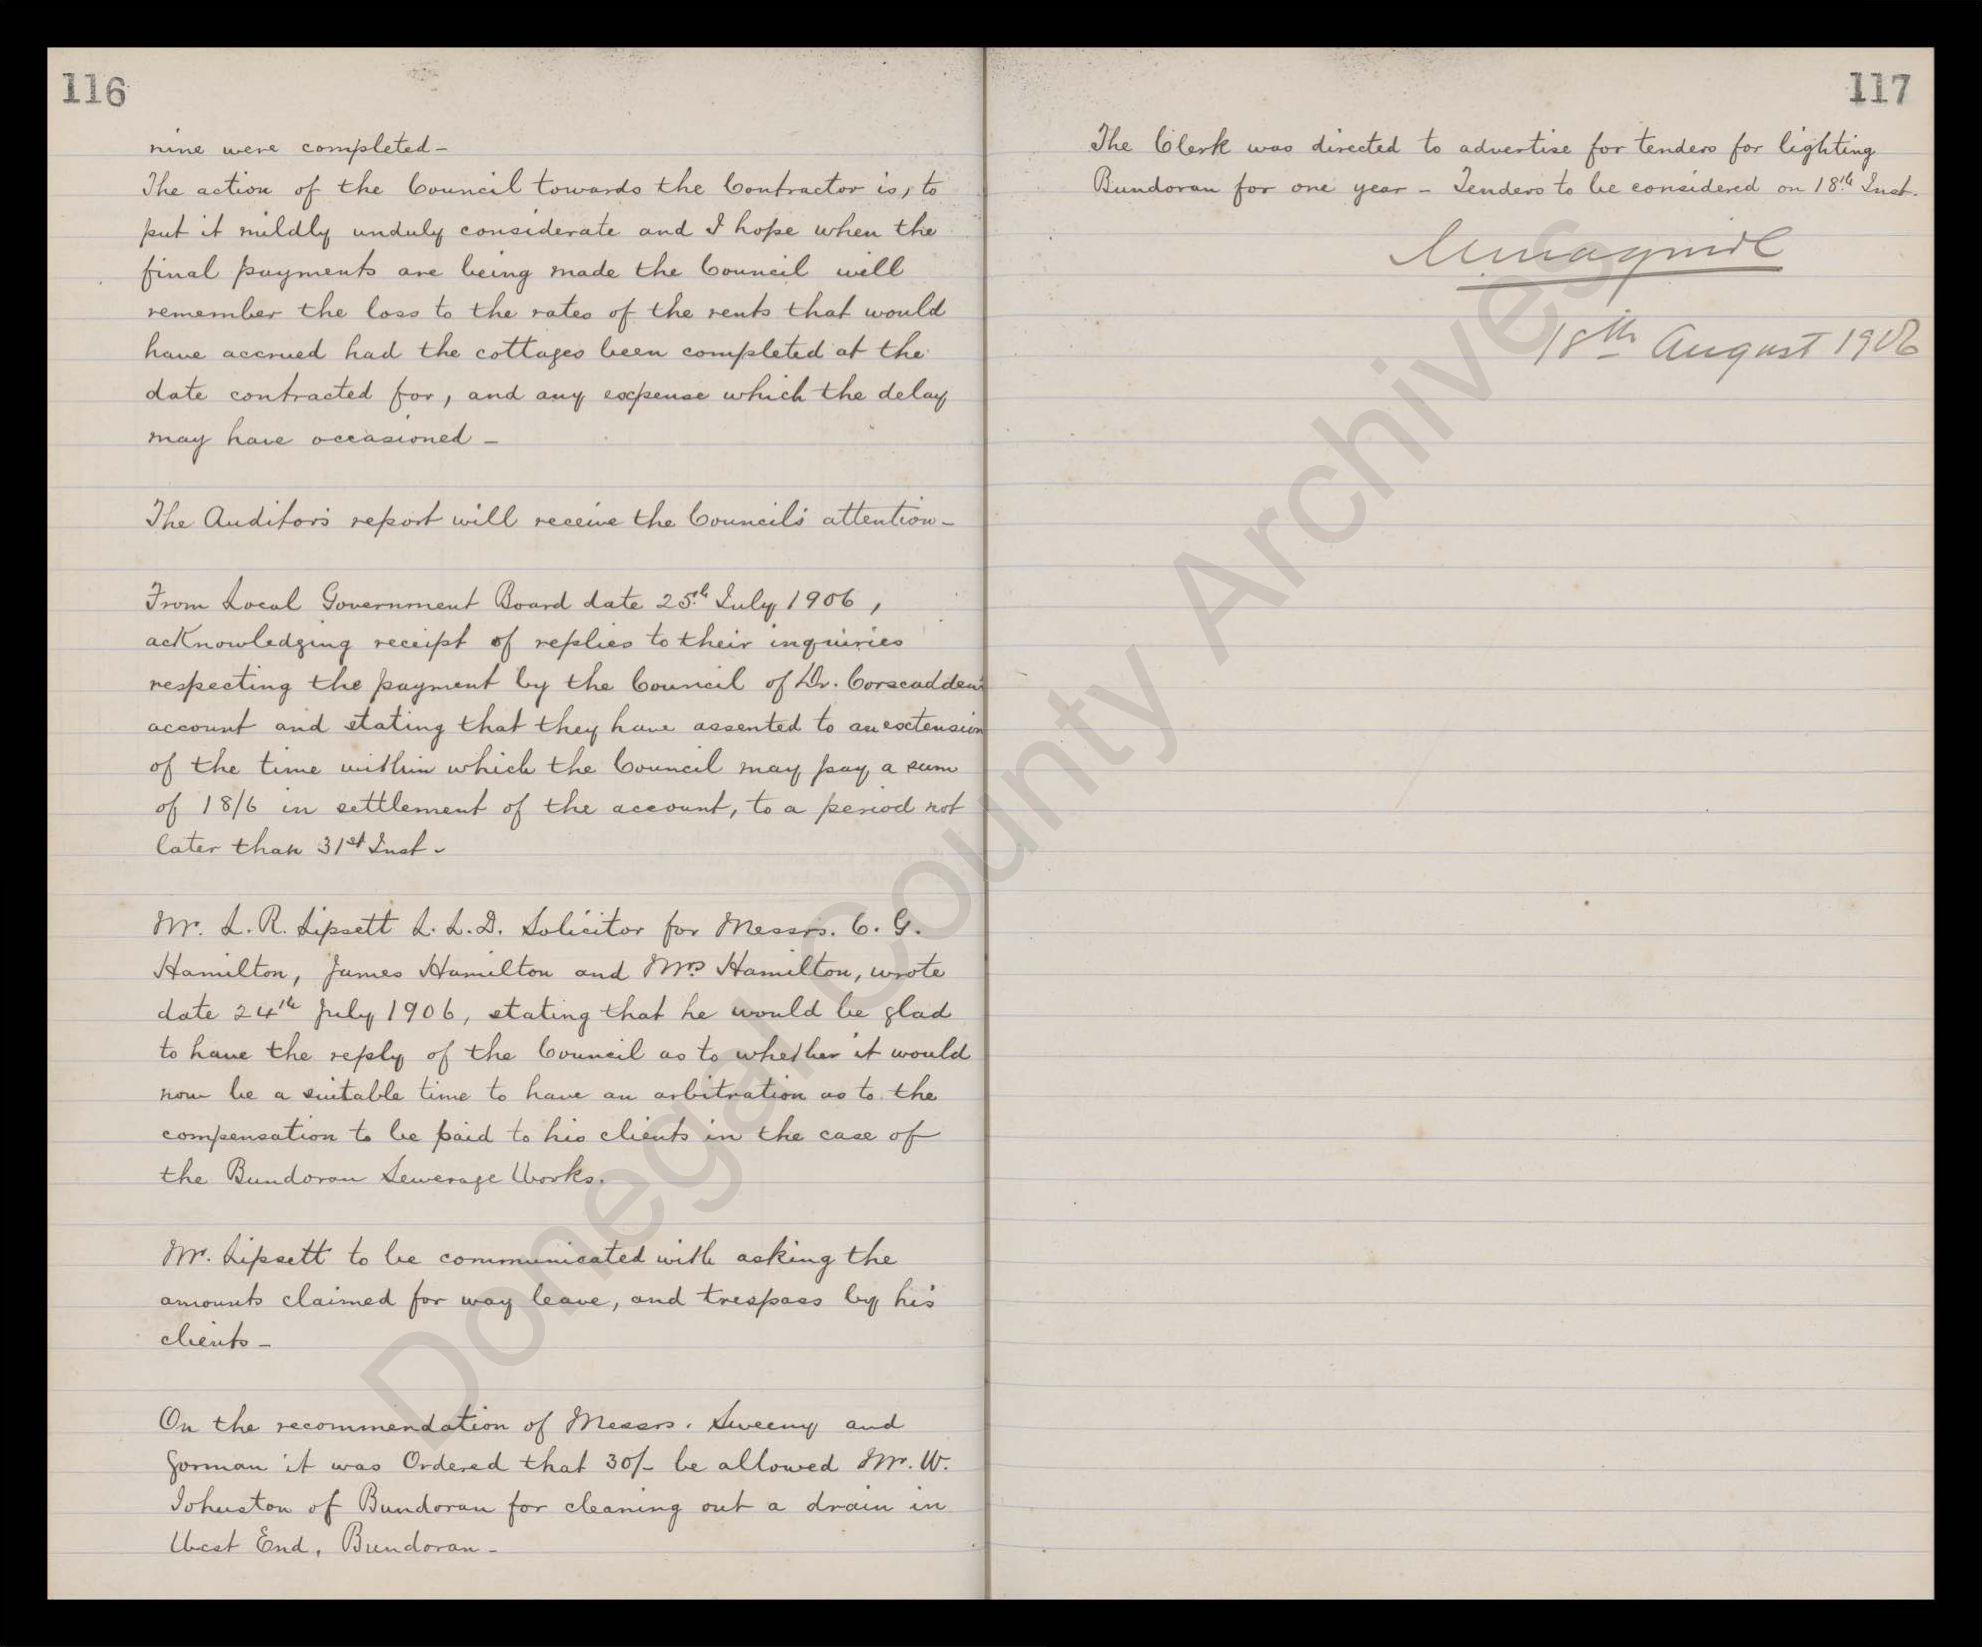 116
nine were completed -
The action of the Council towards the Contractor is, to
put it mildly unduly considerate and I hope when the
final payments are being made the Council will
remember the loss to the rates of the rents that would
have accrued had the cottages been completed at the
date contracted for, and any expense which the delay
may have occasioned -
The Auditor's report will receive the Council's attention -
From Local Government Board date 25th July 1906,
acknowledging receipt of replies to their inquiries
respecting the payment by the Council of Dr. Corscadden's
account and stating that they have assented to an extension
of the time within which the Council may pay a sum
of 18/6 in settlement of the account, to a period not
later than 31st Inst -
Mr. L. R. Lipsett L. L. D. Solicitor for Messrs. C. G.
Hamilton, James Hamilton and Mrs Hamilton, wrote
date 24th July 1906, stating that he would be glad
to have the reply of the Council as to whether it would
now be a suitable time to have an arbitration as to the
compensation to be paid to his clients in the case of
the Bundoran Sewerage Works.
Mr. Lipsett to be communicated with asking the
amounts claimed for way leave, and trespass by his
clients -
On the recommendation of Messrs. Sweeny and
Gorman it was Ordered that 30/- be allowed Mr. W.
Johnston of Bundoran for cleaning out a drain in
West End, Bundoran -
117
The Clerk was directed to advertise for tenders for lighting
Bundoran for one year - Tenders to be considered on 18th Inst.
18th August 1906
Donegal County Archives